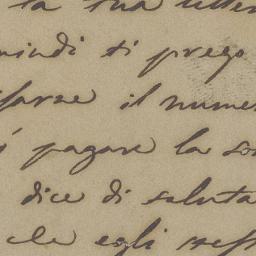 la tua letter
quindi ti prego
farse il nume
pagare la so
dice di saluta
che egli stess